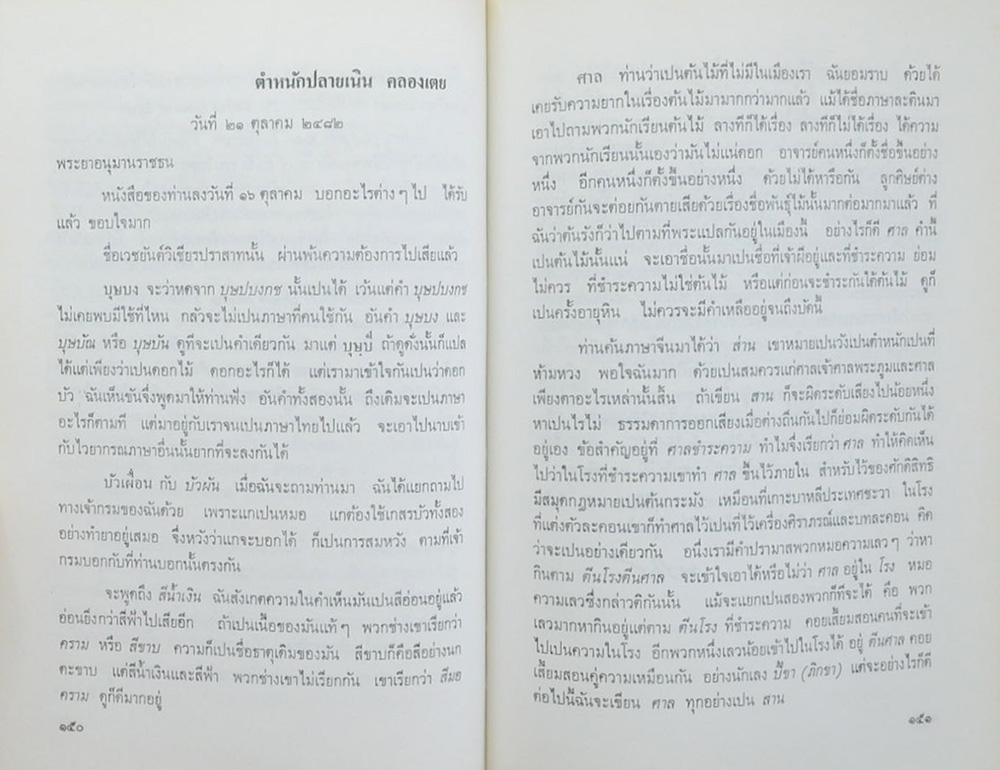 ตำหนักปลายเนิน คลองเตย
วันที่ ๒๑ ตุลาคม ๒๔๘๒
พระยาอนุมานราชธน
หนังสือของท่านลงวันที่ ๑๖ ตุลาคม บอกอะไรต่าง ๆ ไป ได้รับ
แล้ว ขอบใจมาก
ชื่อเวชยันต์วิเชียรปราสาทนั้น ผ่านพ้นความต้องการไปเสียแล้ว
บุษบง จะว่าหดจาก บุษปบงกช นั้นเปนได้ เว้นแต่คำ บุษปบงกช
ไม่เคยพบมีใช้ที่ไหน กลัวจะไม่เปนภาษาที่คนใช้กัน อันคำ บุษบง และ
บุษบัณ หรือ บุษบัน ดูทีจะเปนคำเดียวกัน มาแต่ บุษฺบํ ถ้าดูดั่งนั้นก็แปล
ได้แต่เพียงว่าเปนดอกไม้ ดอกอะไรก็ได้ แต่เรามาเข้าใจกันเปนว่าดอก
บัว ฉันเห็นขันจึ่งพูดมาให้ท่านฟัง อันคำทั้งสองนั้น ถึงเดิมจะเปนภาษา
อะไรก็ตามที แต่มาอยู่กับเราจนเปนภาษาไทยไปแล้ว จะเอาไปนาบเข้า
กับไวยากรณภาษาอื่นนั้นยากที่จะลงกันได้
บัวเผื่อน กับ บัวผัน เมื่อฉันจะถามท่านมา ฉันได้แยกถามไป
ทางเจ้ากรมของฉันด้วย เพราะแกเปนหมอ แกต้องใช้เกสรบัวทั้งสอง
อย่างทำยาอยู่เสมอ จึ่งหวังว่าแกจะบอกได้ ก็เปนการสมหวัง ตามที่เจ้า
กรมบอกกับที่ท่านบอกนั้นตรงกัน
จะพูดถึง สีน้ำเงิน ฉันสังเกตความในคำเห็นมันเปนสีอ่อนอยู่แล้ว
อ่อนยิ่งกว่าสีฟ้าไปเสียอีก ถ้าเปนเนื้อของมันแท้ ๆ พวกช่างเขาเรียกว่า
คราม หรือ สีขาบ ความก็เปนชื่อธาตุเดิมของมัน สีขาบก็คือสีอย่างนก
ตะขาบ แต่สีน้ำเงินและสีฟ้า พวกช่างเขาไม่เรียกกัน เขาเรียกว่า สีมอ
คราม ดูก็ดีมากอยู่
๑๕๐
ศาล ท่านว่าเปนต้นไม้ที่ไม่มีในเมืองเรา ฉันยอมราบ ด้วยได้
เคยรับความยากในเรื่องต้นไม้มามากกว่ามากแล้ว แม้ได้ชื่อภาษาละตินมา
เอาไปถามพวกนักเรียนต้นไม้ ลางทีก็ได้เรื่อง ลางทีก็ไม่ได้เรื่อง ได้ความ
จากพวกนักเรียนนั้นเองว่ามันไม่แน่ดอก อาจารย์คนหนึ่งก็ตั้งชื่อขึ้นอย่าง
หนึ่ง อีกคนหนึ่งก็ตั้งขึ้นอย่างหนึ่ง ด้วยไม่ได้หารือกัน ลูกศิษย์ต่าง
อาจารย์กันจะต่อยกันตายเสียด้วยเรื่องชื่อพันธุ์ไม้นั้นมากต่อมากมาแล้ว ที่
ฉันว่าต้นรังก็ว่าไปตามที่พระแปลกันอยู่ในเมืองนี้ อย่างไรก็ดี ศาล คำนี้
เปนต้นไม้นั้นแน่ จะเอาชื่อนั้นมาเปนชื่อที่เจ้าผีอยู่และที่ชำระความ ย่อม
ไม่ควร ที่ชำระความไม่ใช่ต้นไม้ หรือแต่ก่อนจะชำระกันใต้ต้นไม้ ดูก็
เปนครั้งอายุหิน ไม่ควรจะมีคำเหลืออยู่จนถึงบัดนี้
ท่านค้นภาษาจีนมาได้ว่า ส่าน เขาหมายเปนวังเปนตำหนักเปนที่
ห้ามหวง พอใจฉันมาก ด้วยเปนสมควรแก่ศาลเจ้าศาลพระภูมและศาล
เพียงตาอะไรเหล่านั้นสิ้น ถ้าเขียน สาน ก็จะผิดระดับเสียงไปน้อยหนึ่ง
หาเปนไรไม่ ธรรมดาการออกเสียงเมื่อต่างถิ่นกันไปก็ย่อมผิดระดับกันได้
อยู่เอง ข้อสำคัญอยู่ที่ ศาลชำระความ ทำไมจึ่งเรียกว่า ศาล ทำให้คิดเห็น
ไปว่าในโรงที่ชำระความเขาทำ ศาล ขึ้นไว้ภายใน สำหรับไว้ของศักดิสิทธิ
มีสมุดกฎหมายเปนต้นกระมัง เหมือนที่เกาะบาหลีประเทศชะวา ในโรง
ที่แต่งตัวละคอนเขาก็ทำศาลไว้เปนที่ไว้เครื่องศิราภรณ์และบทละคอน คิด
ว่าจะเปนอย่างเดียวกัน อนึ่งเรามีคำปรามาสพวกหมอความเลว ๆ ว่าหา
กินตาม ตีนโรงตีนศาล จะเข้าใจเอาได้หรือไม่ว่า ศาล อยู่ใน โรง หมอ
ความเลวซึ่งกล่าวติกันนั้น แม้จะแยกเปนสองพวกก็ทีจะได้ คือ พวก
เลวมากหากินอยู่แต่ตาม ตีนโรง ที่ชำระความ คอยเสี้ยมสอนคนที่จะเข้า
ไปเปนความในโรง อีกพวกหนึ่งเลวน้อยเข้าไปในโรงได้ อยู่ ตีนศาล คอย
เสี้ยมสอนคู่ความเหมือนกัน อย่างนักเลง ปี๊ขา (ภิกขา) แต่จะอย่างไรก็ดี
ต่อไปนี้ฉันจะเขียน ศาล ทุกอย่างเปน สาน
๑๕๑